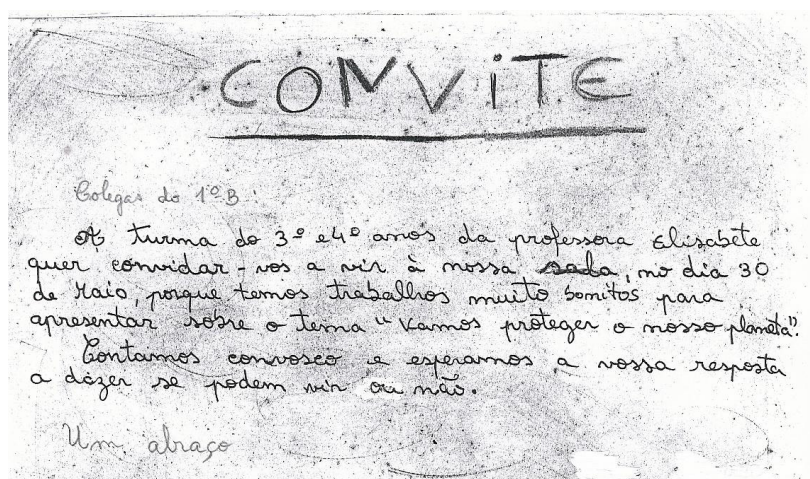 CONVITE
Colegas do 1º B:
A turma do 3º e 4º anos da professora Elisabete
quer convidar-vos a vir à nossa sala, no dia 30
de Maio, porque temos trabalhos muito bonitos para
apresentar sobre o tema "Vamos proteger o nosso planeta".
Contamos convosco e esperamos a vossa resposta
a dizer se podem vir ou não.
Um abraço